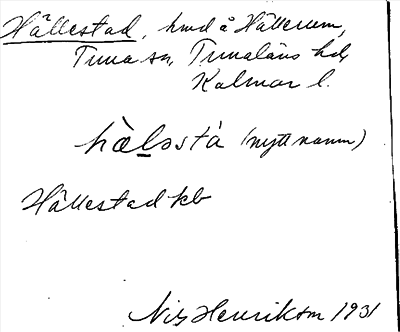 Hällestad, hmd å Hällerum,
Tuna sn, Tunaläns hd,
Kalmar l.
hälsstà (nytt namn)
Hällestad kb
Nils Henrikson 1931